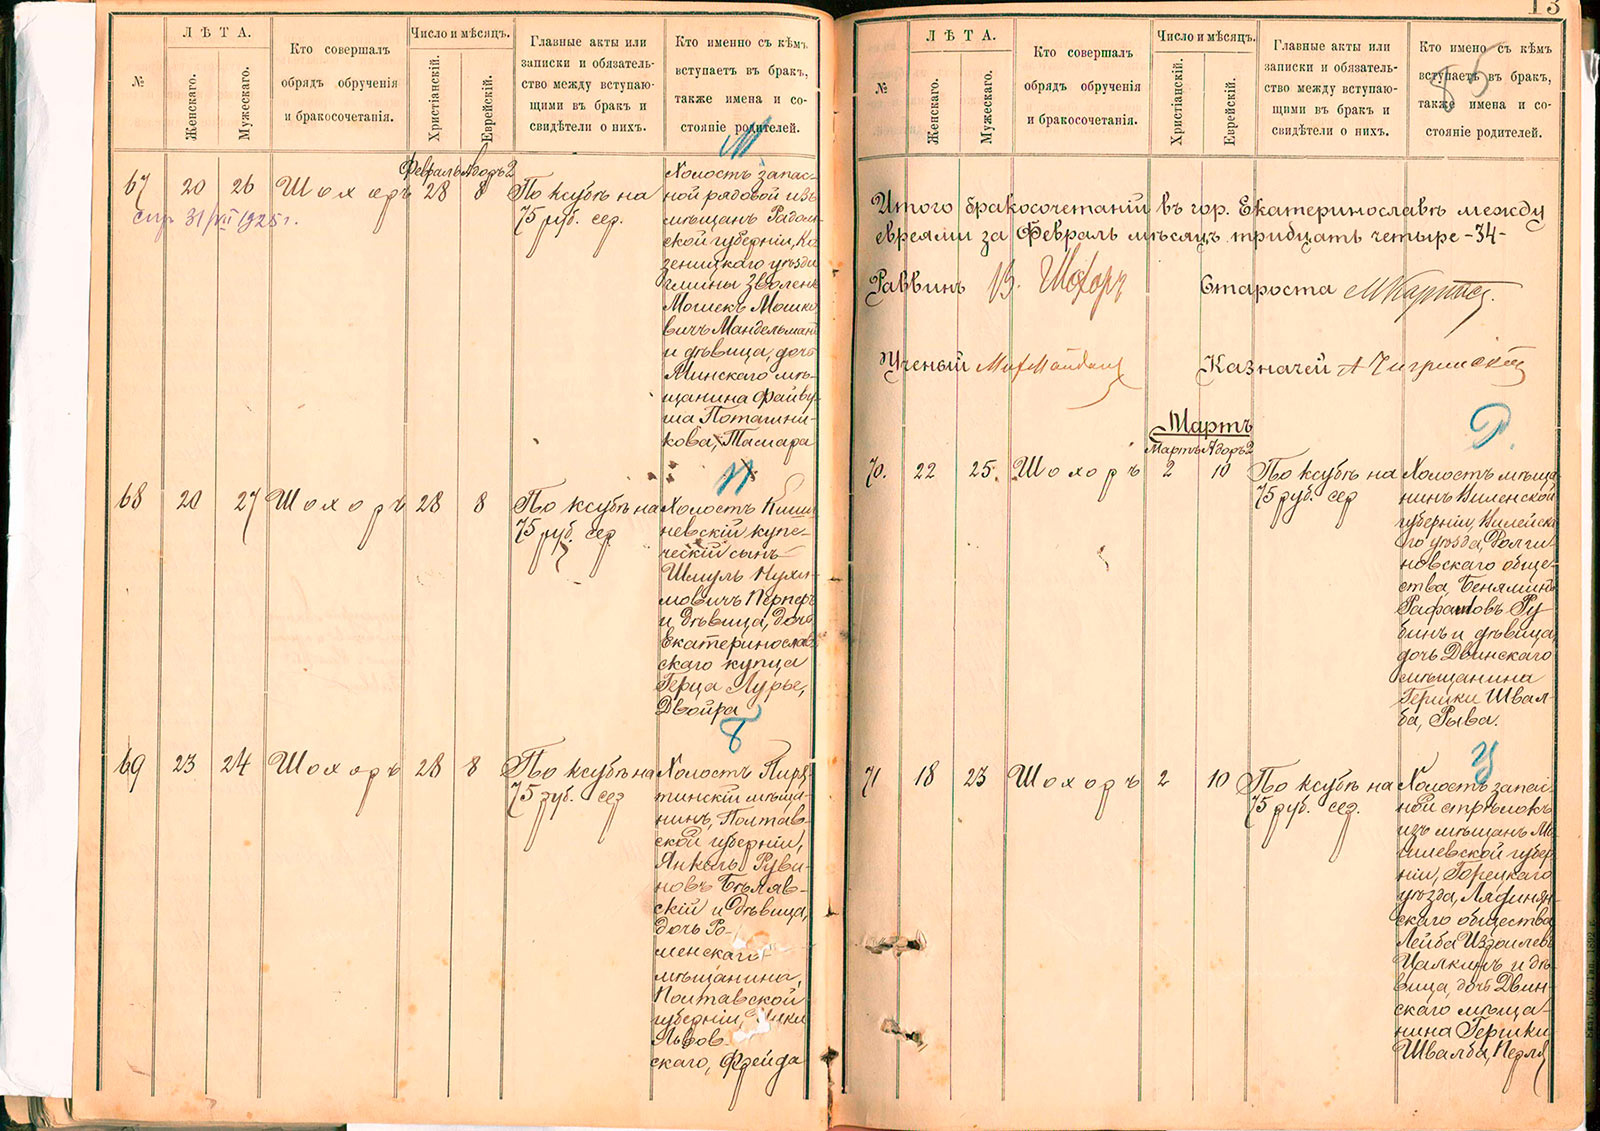 №
ЛѢТА.
Женскаго.
Мужескаго.
Кто совершалъ
обрядъ обрученія
и бракосочетанія.
Число и мѣсяцъ.
Христіанскій.
Еврейскій.
Главные акты или
записки и обязатель-
ство между вступаю-
щими въ бракъ и
свидѣтели о нихъ.
Кто именно съ кѣмъ
вступаетъ въ бракъ,
также имена и со-
стояніе родителей.
М
Февраль Адоръ 2
67 20 26 Шохоръ 28 8
31/VII 1925 г.
По ксубѣ на
75 руб. сер.
Холостъ запас-
ной рядовой изъ
мѣщанъ Радом-
ской губерніи, Ко
зеницкаго уѣзда
гмины Зволень
Мошекъ Мошко
вичъ Мандельманъ
и дѣвица, дочь
Минскаго мѣ-
щанина Файву-
ша Поташни-
кова, Тамара
П
68 20 27 Шохоръ 28 8
По ксубѣ на
75 руб. сер
Холостъ Киши
невскій купе-
ческій сынъ
Шмуль Нухи-
мовичъ Перперъ
и дѣвица, дочь
Екатеринослав
скаго купца
Герца Лурье,
Двойра
Б
69 23 24 Шохоръ 28 8
По ксубѣ на
75 руб. сер
Холостъ Пиря
тинскій мѣща-
нинъ, Полтав-
ской губерніи,
Янкель Руви-
новъ Бѣляв-
скій и дѣвица,
дочь Ро-
менскаго
мѣщанина,
Полтавской
губерніи,
Львов-
скаго, Фрейда
13
№
ЛѢТА.
Женскаго.
Мужескаго.
Кто совершалъ
обрядъ обрученія
и бракосочетанія.
Число и мѣсяцъ.
Христіанскій.
Еврейскій.
Главные акты или
записки и обязатель-
ство между вступаю-
щими въ бракъ и
свидѣтели о нихъ.
Кто имено съ кѣмъ
вступаетъ въ бракъ,
также имена и со-
стояніе родителей.
Итого бракосочетаній въ гор. Екатеринославѣ между
евреями за Февраль мѣсяцъ тридцать четыре -34-
Раввинъ В. Шохоръ Староста
Ученый Казначей А Чигринскій
Мартъ
Мартъ Адоръ 2
Р.
70. 22 25. Шохоръ 2 10
По ксубѣ на
75 руб. сер
Холостъ мѣща
нинъ Виленской
губерніи, Вилейска
го уѣзда, Долги-
новскаго обще-
ства, Беняминъ
Рафаиловъ Ру-
бинъ и дѣвица,
дочь Двинскаго
мѣщанина
Гершки Швал-
ба, Рыва.
Ц
71 18 23 Шохоръ 2 10
По ксубѣ на
75 руб. сер.
Холостъ запас
ной стрѣлокъ
изъ мѣщанъ Мо
гилевской губер
ніи, Горецкаго
уѣзда,
скаго общества
Лейба Израилевъ
Цалкинъ и дѣ-
вица, дочь Двин-
скаго мѣща-
нина Гершки
Швалба, Перля